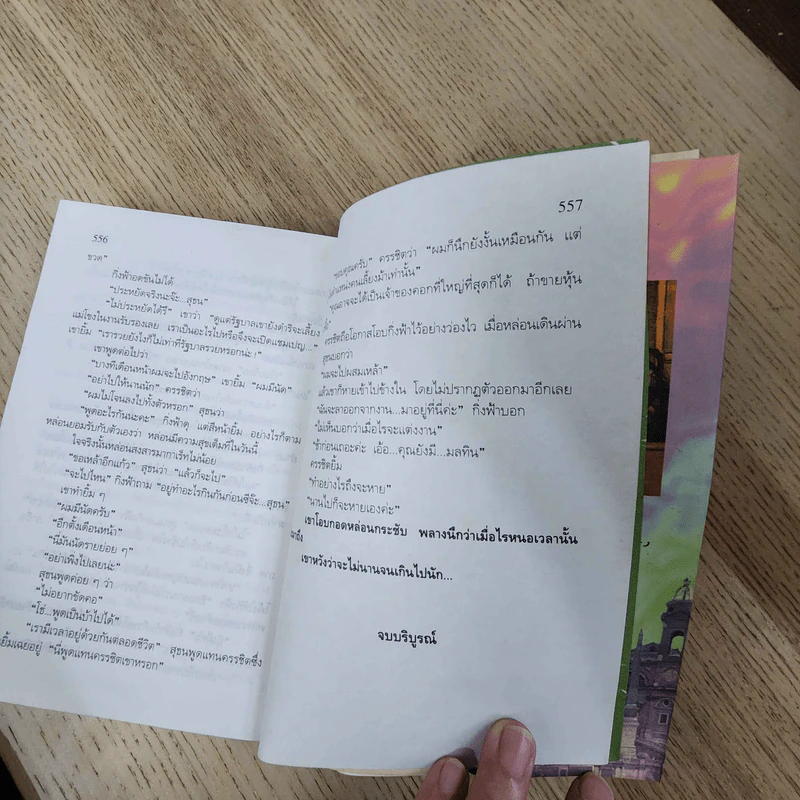 556
ขวด"
กิ่งฟ้าอดขันไม่ได้
"ประหยัดจริงนะจ๊ะ...สุธน"
"ไม่ประหยัดได้รึ" เขาว่า "ดูแต่รัฐบาลเขายังดำริจะเลี้ยง
แม่โขงในงานรับรองเลย เราเป็นอะไรไปหรือจึงจะเปิดแชมเปญ..."
เขายิ้ม "เรารวยยังไงก็ไม่เท่าที่รัฐบาลรวยหรอกน่ะ!"
เขาพูดต่อไปว่า
"บางทีเดือนหน้าผมจะไปอังกฤษ" เขายิ้ม "ผมมีนัด"
"อย่าไปให้นานนัก" ครรชิตว่า
"ผมไม่โจนลงไปทั้งตัวหรอก" สุธนว่า
"พูดอะไรกันนะคะ" กิ่งฟ้าดุ แต่สีหน้ายิ้ม อย่างไรก็ตาม
หล่อนยอมรับกับตัวเองว่า หล่อนมีความสุขเต็มที่ในวันนี้
ใจจริงนั้นหล่อนสงสารมากาเร็ทไม่น้อย
"ขอเหล้าอีกแก้ว" สุธนว่า "แล้วก็จะไป"
"จะไปไหน" กิ่งฟ้าถาม "อยู่ทำอะไรกินกันก่อนซีจ๊ะ...สุธน"
เขาทำยิ้ม ๆ
"ผมมีนัดครับ"
"อีกตั้งเดือนหน้า"
"นี่มันนัดรายย่อย ๆ"
"อย่าเพิ่งไปเลยน่ะ"
สุธนพูดค่อย ๆ ว่า
"ไม่อยากขัดคอ"
"โฮ่...พูดเป็นบ้าไปได้"
"เรามีเวลาอยู่ด้วยกันตลอดชีวิต" สุธนพูดแทนครรชิตซึ่ง
ยิ้มเฉยอยู่ "นี่พูดแทนครรชิตเขาหรอก"
557
"ขอบคุณครับ" ครรชิตว่า "ผมก็นึกยังงั้นเหมือนกัน แต่
ตำแหน่งคนเลี้ยงม้าเท่านั้น"
"คุณอาจจะได้เป็นเจ้าของคอกที่ใหญ่ที่สุดก็ได้ ถ้าขายหุ้น
ครรชิตถือโอกาสโอบกิ่งฟ้าไว้อย่างว่องไว เมื่อหล่อนเดินผ่าน
สุธนบอกว่า
"ผมจะไปผสมเหล้า"
แล้วเขาก็หายเข้าไปข้างใน โดยไม่ปรากฏตัวออกมาอีกเลย
"ฉันจะลาออกจากงาน...มาอยู่ที่นี่ค่ะ" กิ่งฟ้าบอก
"ไม่เห็นบอกว่าเมื่อไรจะแต่งงาน"
"ช้าก่อนเถอะค่ะ เอ้อ...คุณยังมี...มลทิน"
ครรชิตยิ้ม
"ทำอย่างไรถึงจะหาย"
"นานไปก็จะหายเองค่ะ"
เขาโอบกอดหล่อนกระชับ พลางนึกว่าเมื่อไรหนอเวลานั้น
จะมาถึง
เขาหวังว่าจะไม่นานจนเกินไปนัก...
จบบริบูรณ์